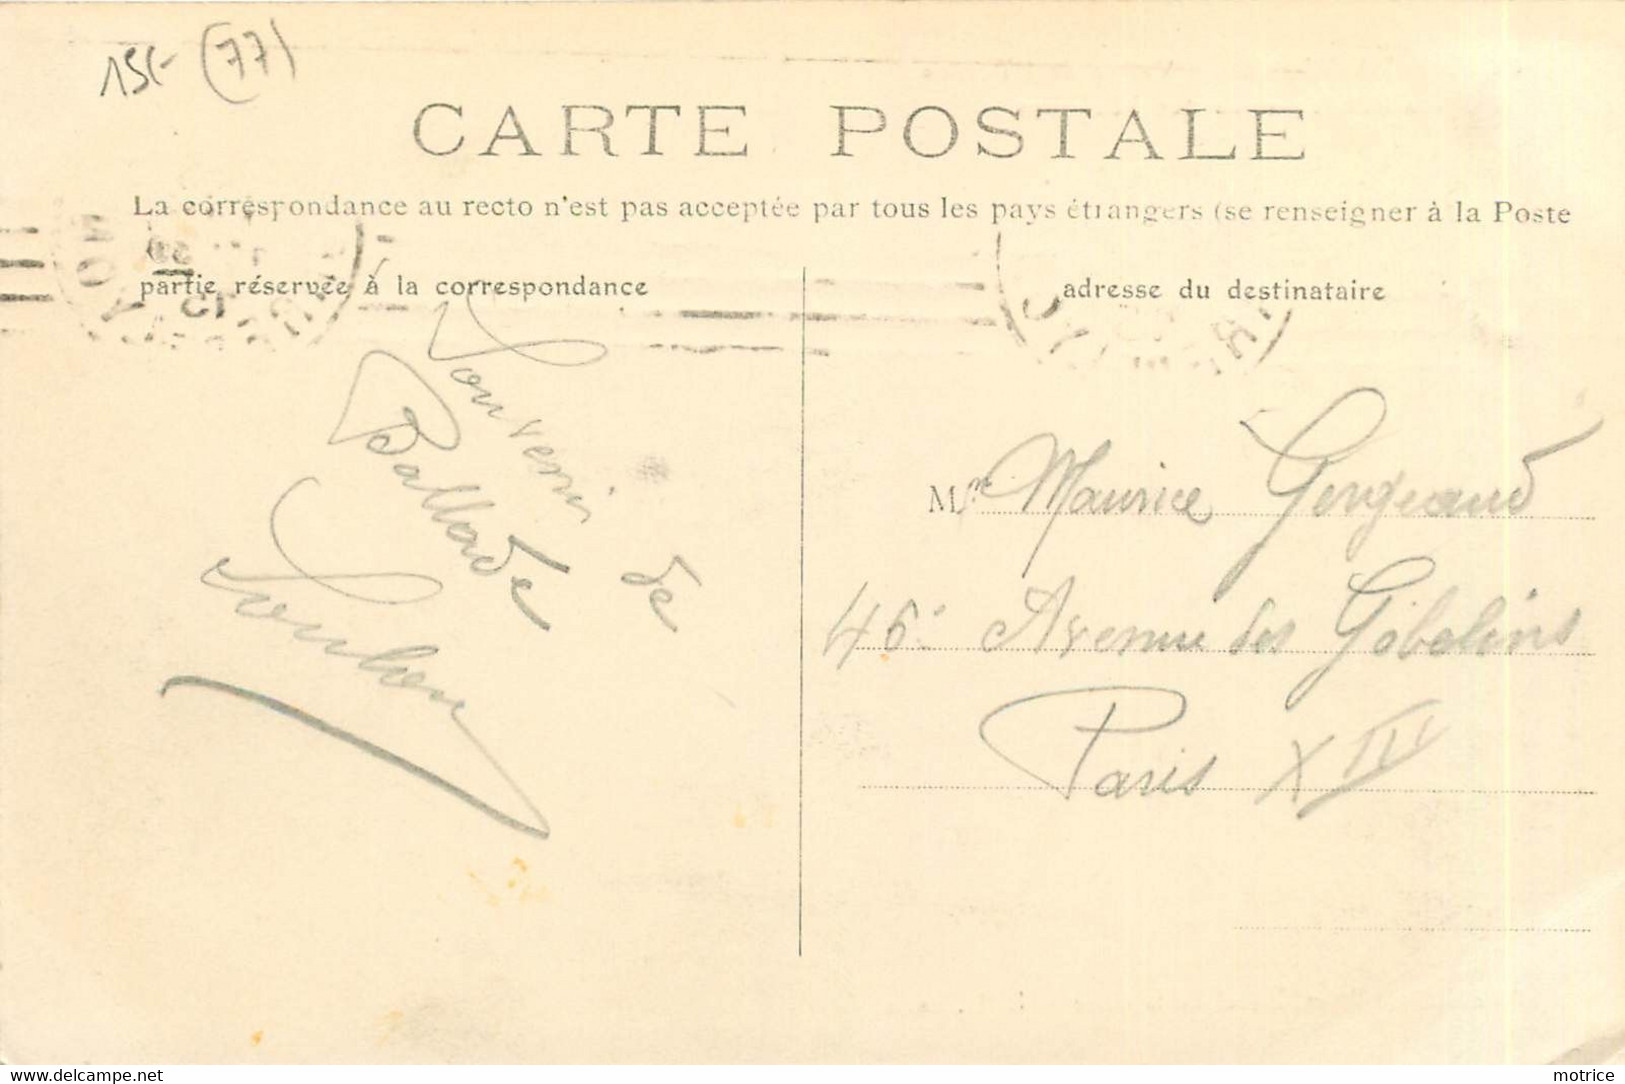 15€ (77)
CARTE POSTALE
La correspondance au recto n'est pas acceptée par tous les pays étrangers (se renseigner à la Poste
partie réservée à la correspondance
adresse du destinataire
Souvenir de
Ballade
Mme Maurice Gergeaud
46 Avenue des Gobelins
Paris XIII
www.delcampe.net
motrice